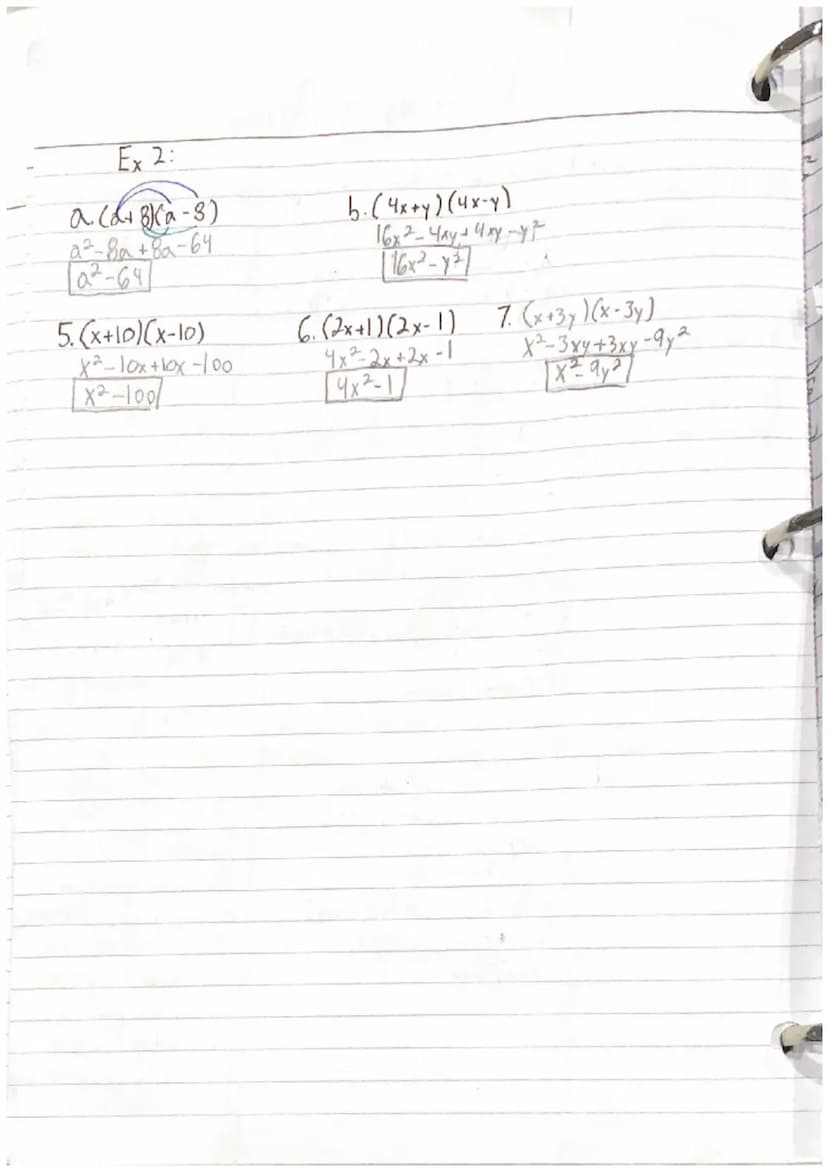 Ex 2:
a. (a+8)(a-8)
a²-8a+8a-64
a²-64
b. (4x+y)(4x-y)
16x²-4xy+4xy-y²
16x²-y²
5. (x+10)(x-10)
x²-10x+10x-100
x²-100
6. (2x+1)(2x-1)
4x²-2x+2x-1
4x²-1
7. (x+3y)(x-3y)
x²-3xy+3xy-9y²
x²-9y²